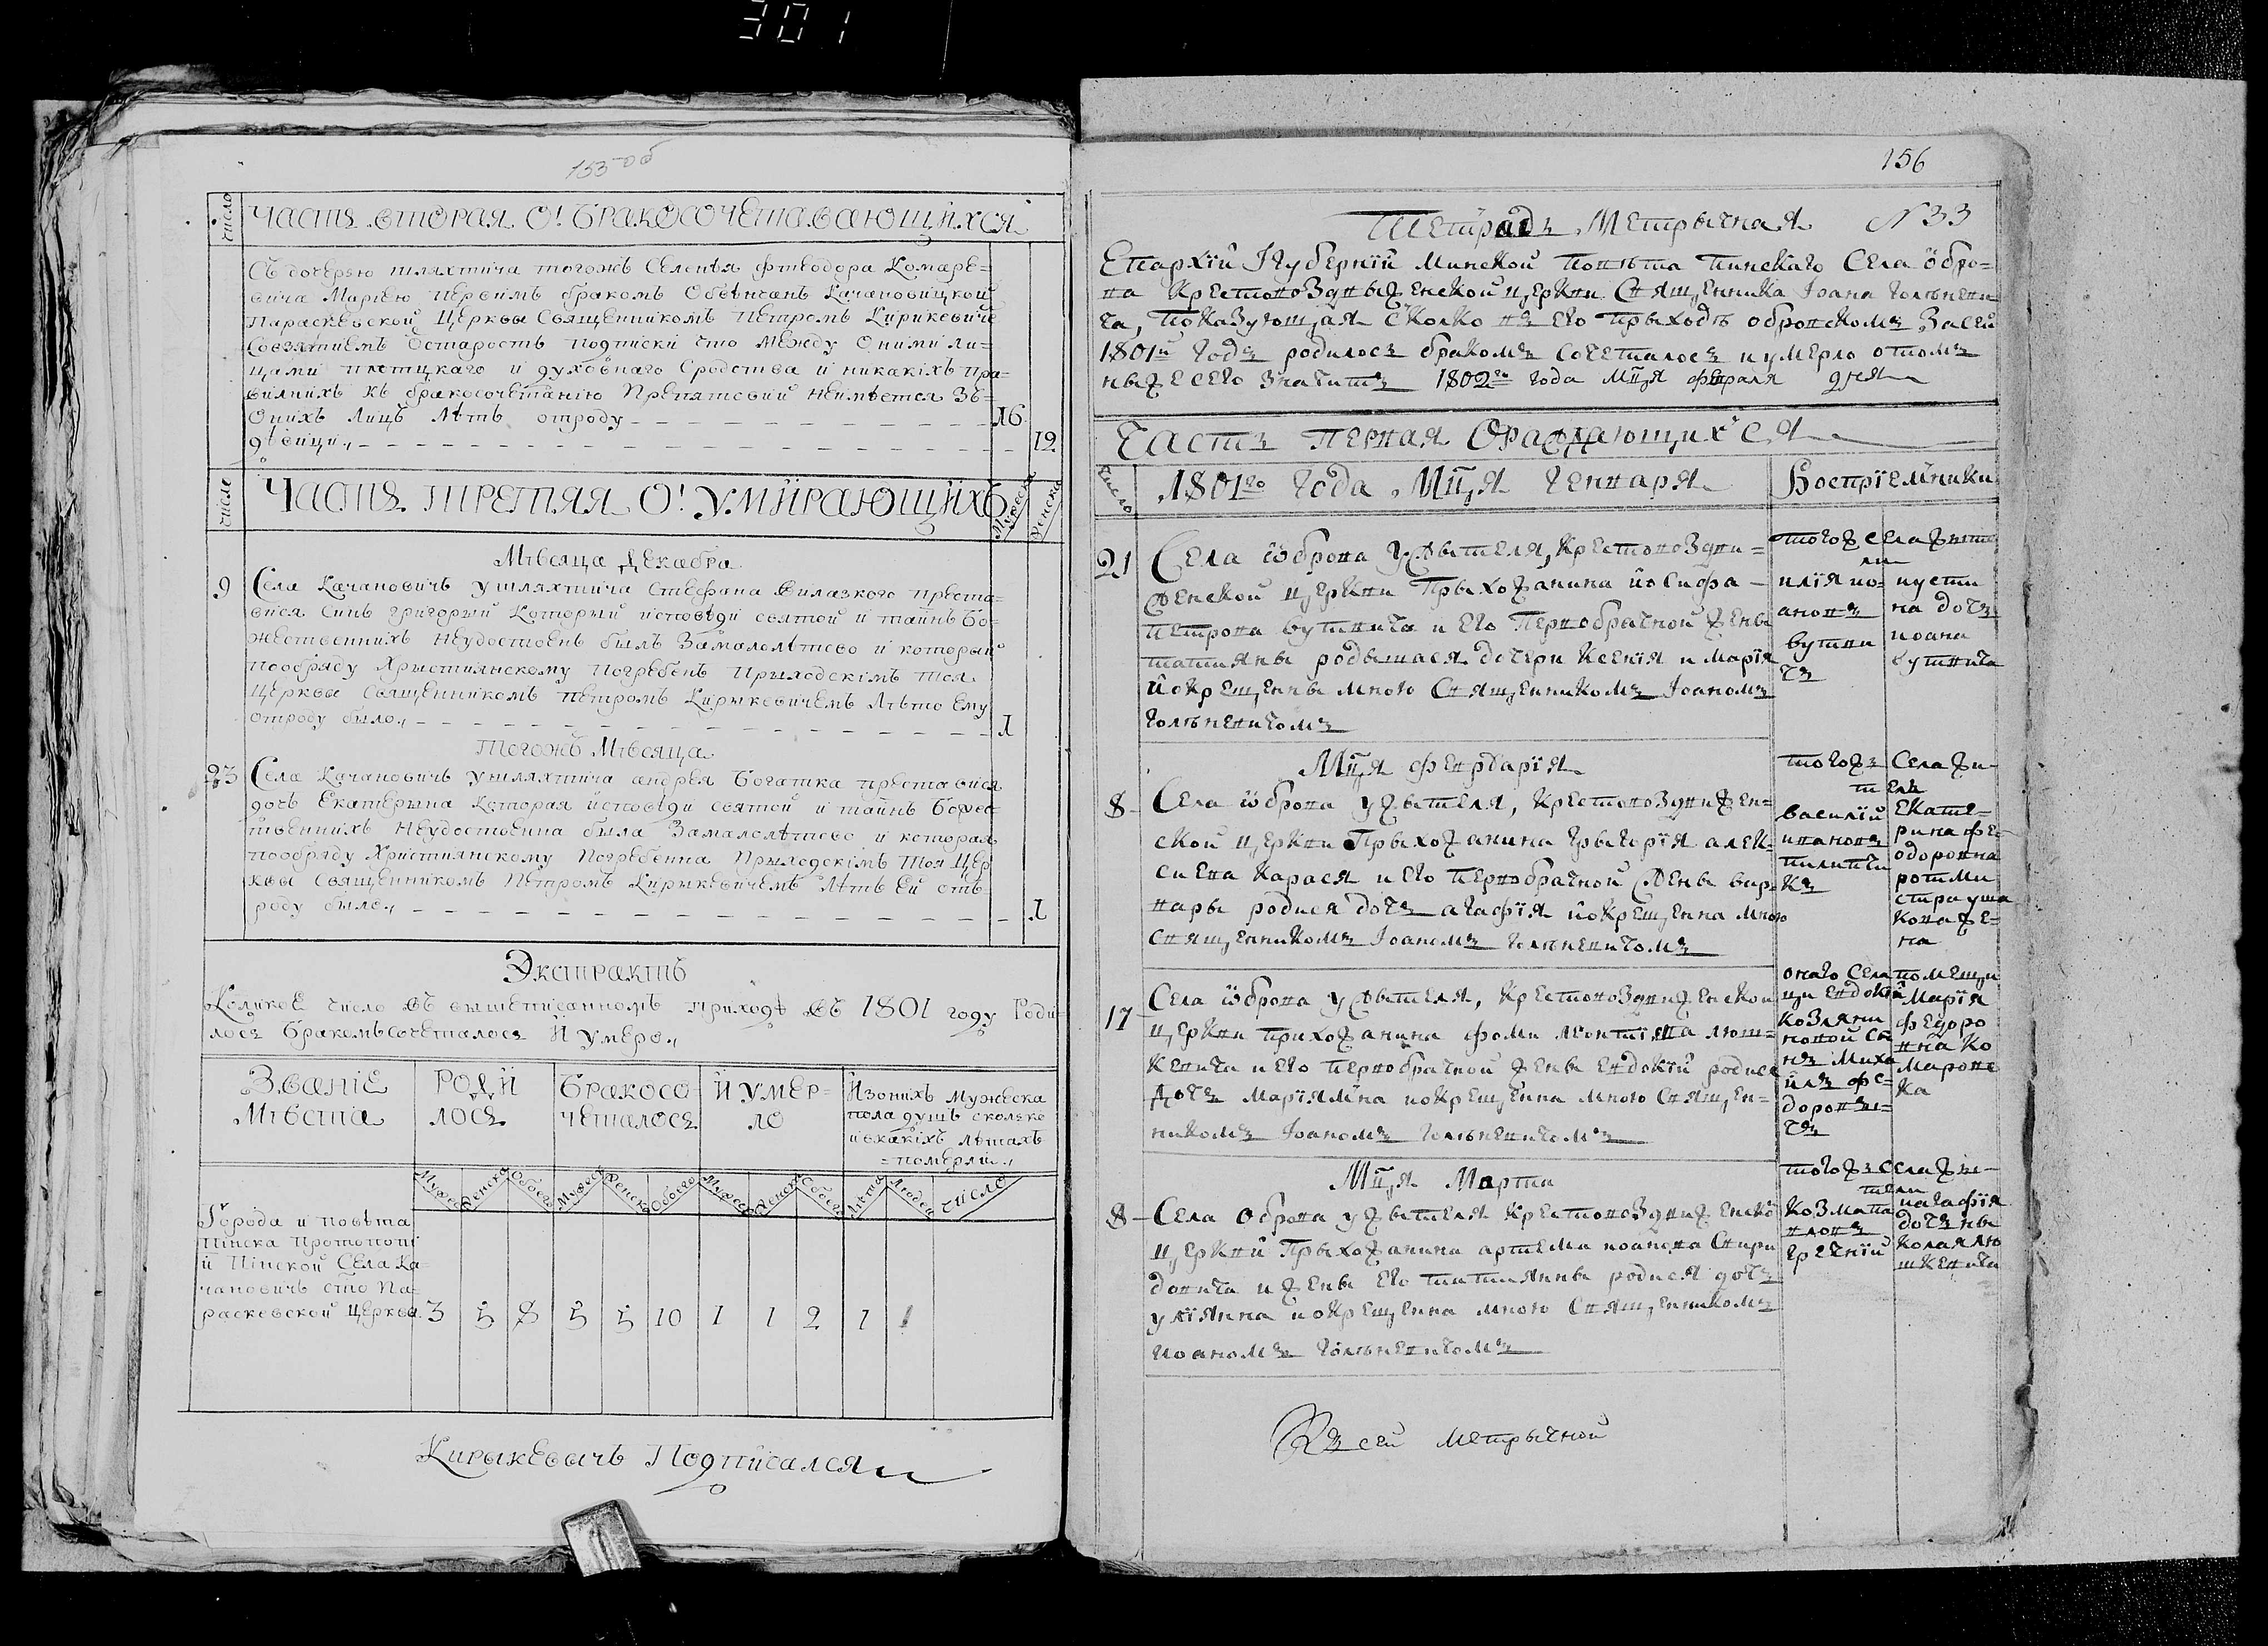 301
153 об
число
Часть вторая О! Бракосочетавающихся
Съ дочерью шляхтича тогожъ Селенія Фтеодора Комаре=
вича Маріею первимъ бракомъ Обвѣнчанъ Качановицкой
Параскевской Церквы Священникомъ Петромъ Кирикевиче
Совзятиемъ Остарость подписки что между Оними ли=
цами плотцкаго и духовнаго Сродства и никакіхъ пра=
вилнихъ къ бракосочетанію Препятсвий неимѣется Зъ=
Онихъ Лицъ Лѣтъ отроду 16
дѣвици 19
число
Часть третяя О! Умирающихъ
Мужеска
Женска
Мѣсяца Декабра
9 Села Качановичъ у шляхтича Стефана Вилазкого преста=
вися Синъ Григорый Который исповѣди святой и тайнъ Бо=
жественнихъ неудостоенъ былъ Замалолѣтсво и который
пообряду Хрыстиянскому Погребенъ Приходскімъ Тоя
Церквы Священникомъ Петромъ Кирыкевичемъ Лѣто Ему
отроду было 1
Тогожъ Мѣсяца
23 Села Качановичъ у шляхтича андрея Богатика преставися
дочь Екатерына Которая исповѣди святой и тайнъ Божес
твеннихъ Неудостоенна была Замалолѣтсво и которая
пообряду Християнскому Погребенна Прыходскімъ Тоя Цер
квы Священникомъ Петромъ Кирыкевичемъ Лѣтъ Ей отъ
роду было 1
Экстрактъ
Коликое число въ вышеписанномъ приходѣ въ 1801 году Роди
лось Бракомъсочеталось И Умеро
Званіе Мѣста
Роди лось
Бракосо четалось
И умер= ло
Изонихъ Мужеска
пола душъ сколько
и вкакіхъ лѣтахъ
=померли
Мужес Женск Обоего Мужес Женск Обоего Мужес Женск Обоего Лѣта Людей Число
Города и повѣта
Пинска Протопопи
и Пінской Села Ка=
чановичъ сто Па=
раскевской Церквы 3 5 8 5 5 10 1 1 2 1 1
Кирыкевычъ Подписался
156
Тетрадь Метрычная N 33
Епархїй Губернїй Минской Повѣта Пинскаго Села Обро=
ва Крестовоздвыженской церкви Священника Іоана Голѣневи
ча, Показующая Сколко въ его Прыходѣ обровскомъ Засей
1801й Годъ родилось бракомъ сочеталось и умерло отомъ
ныжесего значитъ 1802го года Мц҃я февраля дня
Часть первая Ораждающихся
число
1801го Года Мц҃я Генваря
Воспрїемники
21 Села Ѡброва у жытеля, Крестовоздви=
женской церкви Прыхожанина Иосифа
Петрова бутвича и его Первобрачной жены
татияны родышася дочери Ксенїя и Марїя
Йокрещенны мною Священникомъ Іоаномъ
Голѣневичомъ
тогожъ села жите
ли
илїя ио=
анова
бутви
чъ
иусти
на дочъ
иоана
бутвича
Мц҃я февруарїя
8 Села Ѡброва у жытеля, Крестовоздвижен=
ской церкви Прыхожанина Грыгорїя алек=
сиева Карася и его первобрачной жены вар=
вары родися дочъ агафїя йокрещенна мною
Священникомъ Іоаномъ Голѣневичомъ
тогожъ Села жи
тели
василїй
ивановъ
пилипчи
Къ
Екате=
рина фе=
одоровна
ротми
стра уша
кова же=
на
17 Села Ѡброва у жытеля, Крестовоздвиженской
церкви прихожанина фоми леонтиева люш=
кевича и его первобрачной жены Евдокїй родися
дочъ Марїямна йокрещенна мною Священ=
никомъ Іоаномъ Голѣневичомъ
онаго Села помещи
ци Евдокїй
козляни
новой сы
нъ Миха
илъ фе=
доровы=
чъ
Марїя
федоро
вна Ко
маровс
ка
Мц҃я Марта
8 Села Оброва у жытеля Крестовоздвиженско
церквй Прыхожанина артеми иоанова Спири
донича и жены его татиянны родися дочъ
улїянна йокрещенна мною Священникомъ
Иоаномъ Голѣневичомъ
тогожъ Села жы
тели
Козма па
вловъ
гречнїй
иагафїя
дочъ ни
колая лю
шкевича
Къ сей метрычной